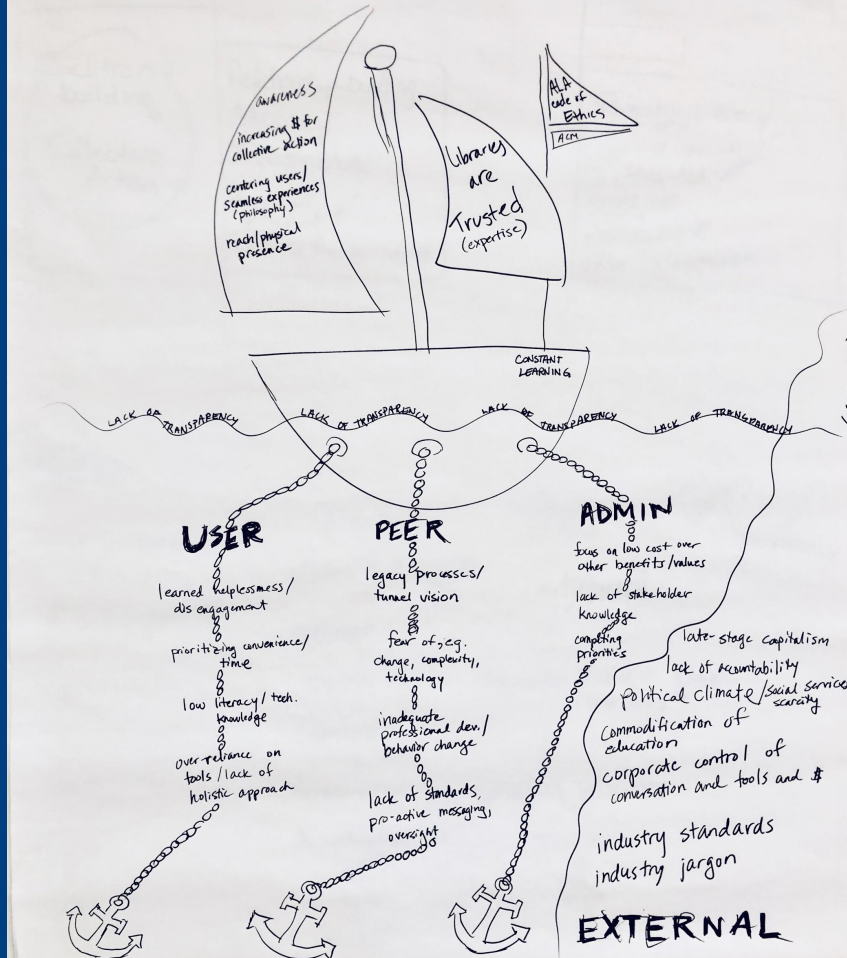 awareness
increasing $ for
collective action
centering users/
seamless experiences
(philosophy)
reach/physical
presence
Libraries
are
Trusted
(expertise)
ALA
code of
Ethics
ACM
CONSTANT
LEARNING
LACK OF TRANSPARENCY LACK OF TRANSPARENCY LACK OF TRANSPARENCY LACK OF TRANSPARENCY
USER
learned helplessness/
disengagement
prioritizing convenience/
time
low literacy/tech.
knowledge
over-reliance on
tools/lack of
holistic approach
PEER
legacy processes/
tunnel vision
fear of, eg.
change, complexity,
technology
inadequate
professional dev./
behavior change
lack of standards,
pro-active messaging,
oversight
ADMIN
focus on low cost over
other benefits/values
lack of stakeholder
knowledge
competing
priorities
late-stage capitalism
lack of accountability
political climate/social services
scarcity
Commodification of
education
corporate control of
conversation and tools and $
industry standards
industry jargon
EXTERNAL